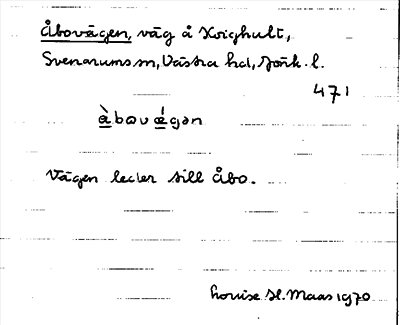 Åbovägen, väg å Kvighult,
Svenarums sn, Västra hd, Jönk. l.
471
àbovǽgən
Vägen leder till Åbo.
Louise H. Maas 1970